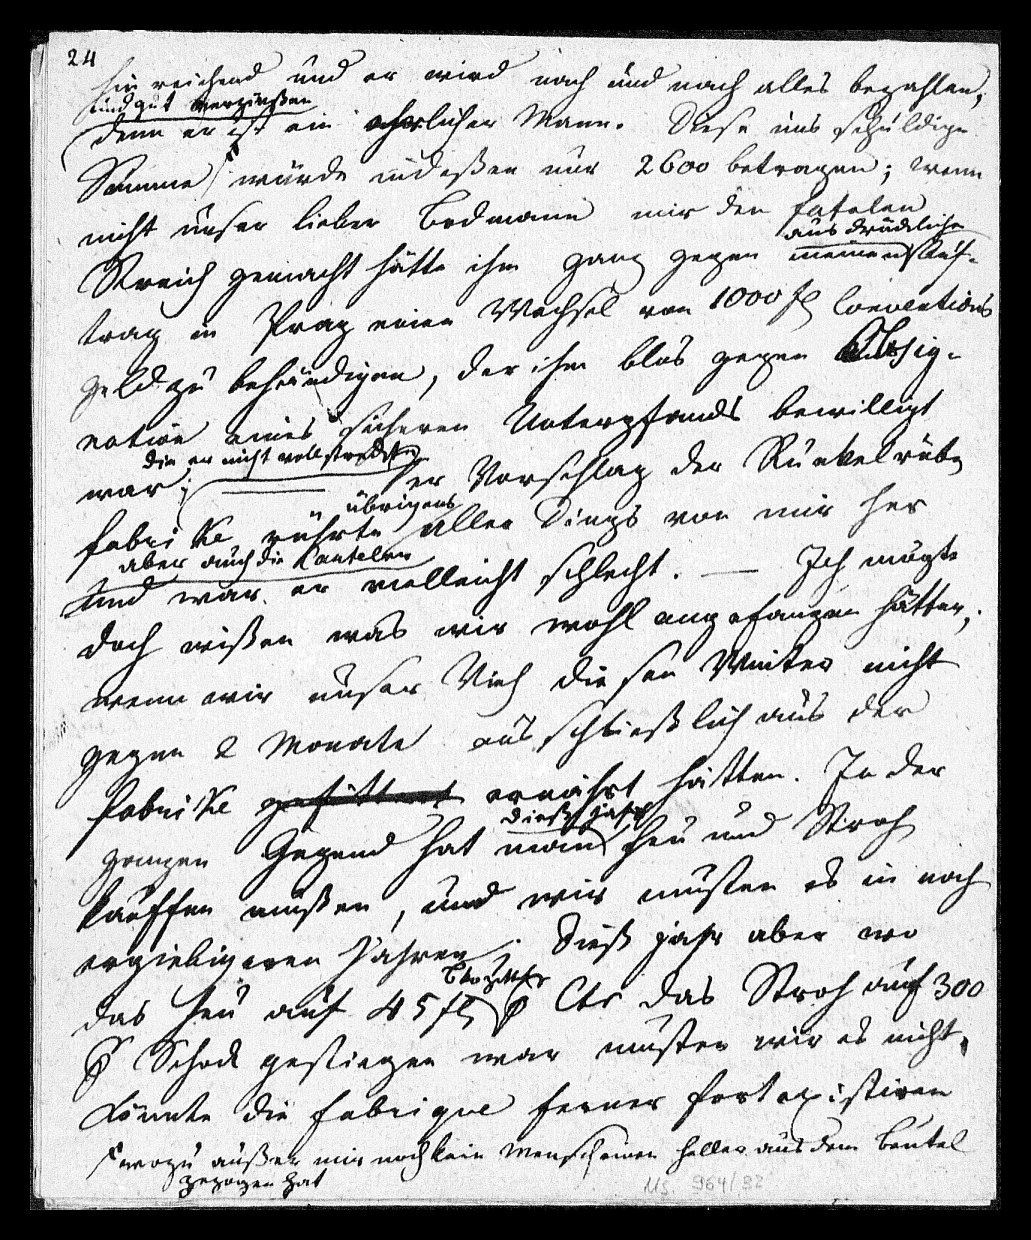 24
hin reichend und er wird nach und nach alles bezahlen,
und gut verzinßen
denn er ist ein ehrlicher Mann. Diese uns schuldige
Summe würde indeßen nur 2600 betragen; wenn
nicht unser lieber Bodmann mir den fatalen
ausdrückliche
Streich gemacht hätte ihm ganz gegen meinen Auf-
trag in Prag einen Wechsel von 1000 fl Conventions
geld zu behändigen, der ihm blos gegen Assig-
nation eines sicheren Unterpfands bewilligt
die er nicht vollstreckte
war; Der Vorschlag der Runkelrübe
übrigens
fabrike rührte aller Dings von mir her
aber auch die Cautelen
und war er vielleicht schlecht. — Ich mögte
doch wißen was wir wohl angefangen hätten,
wenn wir unser Vieh diesen Winter nicht
gegen 2 Monate ausschließlich aus der
Fabrike gefüttert ernährt hätten. In der
dieß jahr
ganzen Gegend hat man heu und Stroh
kauffen müßen, und wir musten es in noch
ergiebigeren Jahren. Dieß jahr aber wo
das heu auf 45 fl Ctr das Stroh auf 300
Schock gestiegen war musten wir es nicht.
Könnte die fabrique ferner fort existiren
wozu außer mir noch kein Mensch einen heller aus dem beutel
gezogen hat
Ms. 964/32